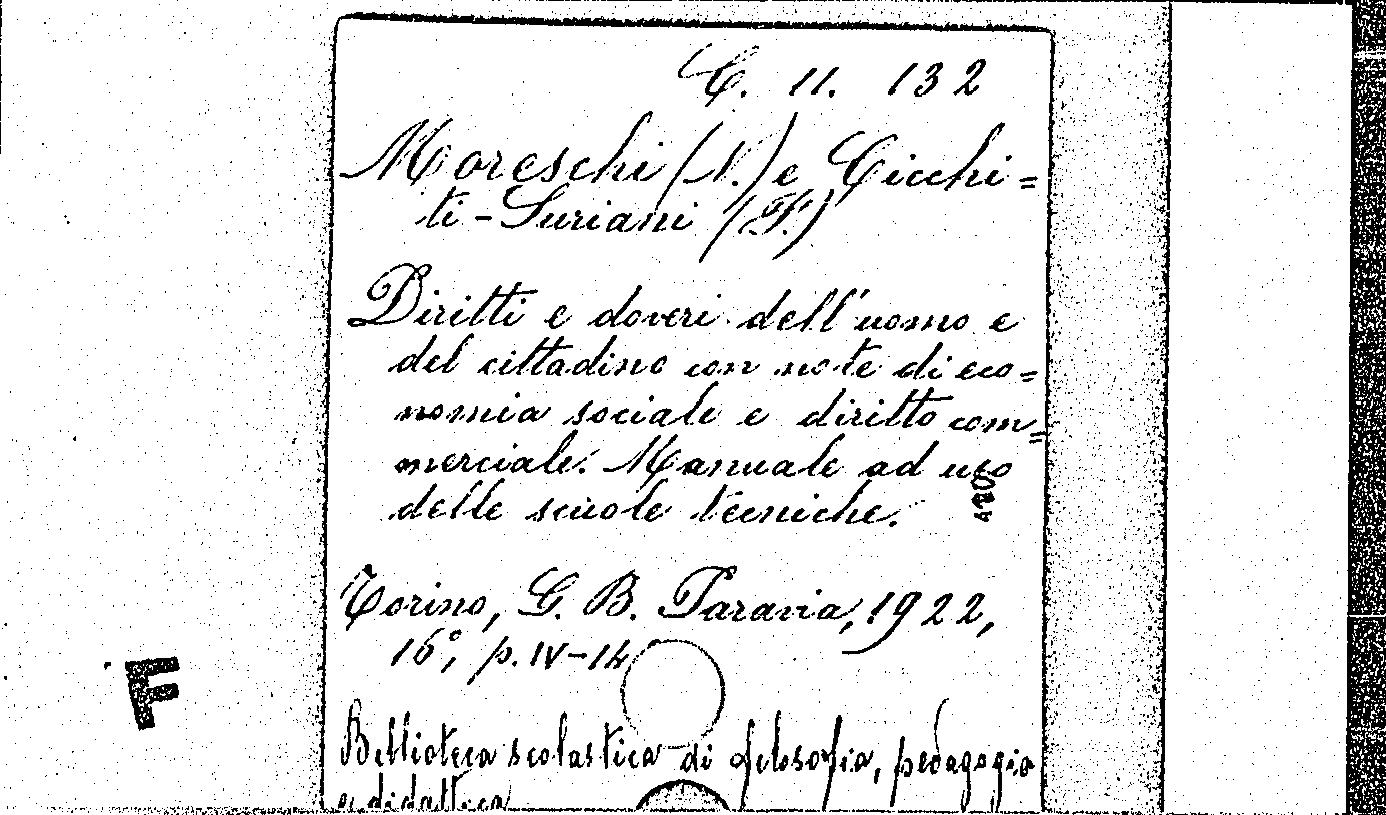 C. 11. 132
Moreschi (N.) e Cicchi=
ti-Suriani (F.)
Diritti e doveri dell'uomo e
del cittadino con note di eco=
nomia sociale e diritto com=
merciale. Manuale ad uso
delle scuole tecniche.
Torino, G. B. Paravia, 1922,
16°, p. IV-14
F
Biblioteca scolastica di filosofia, pedagogia
e didattica